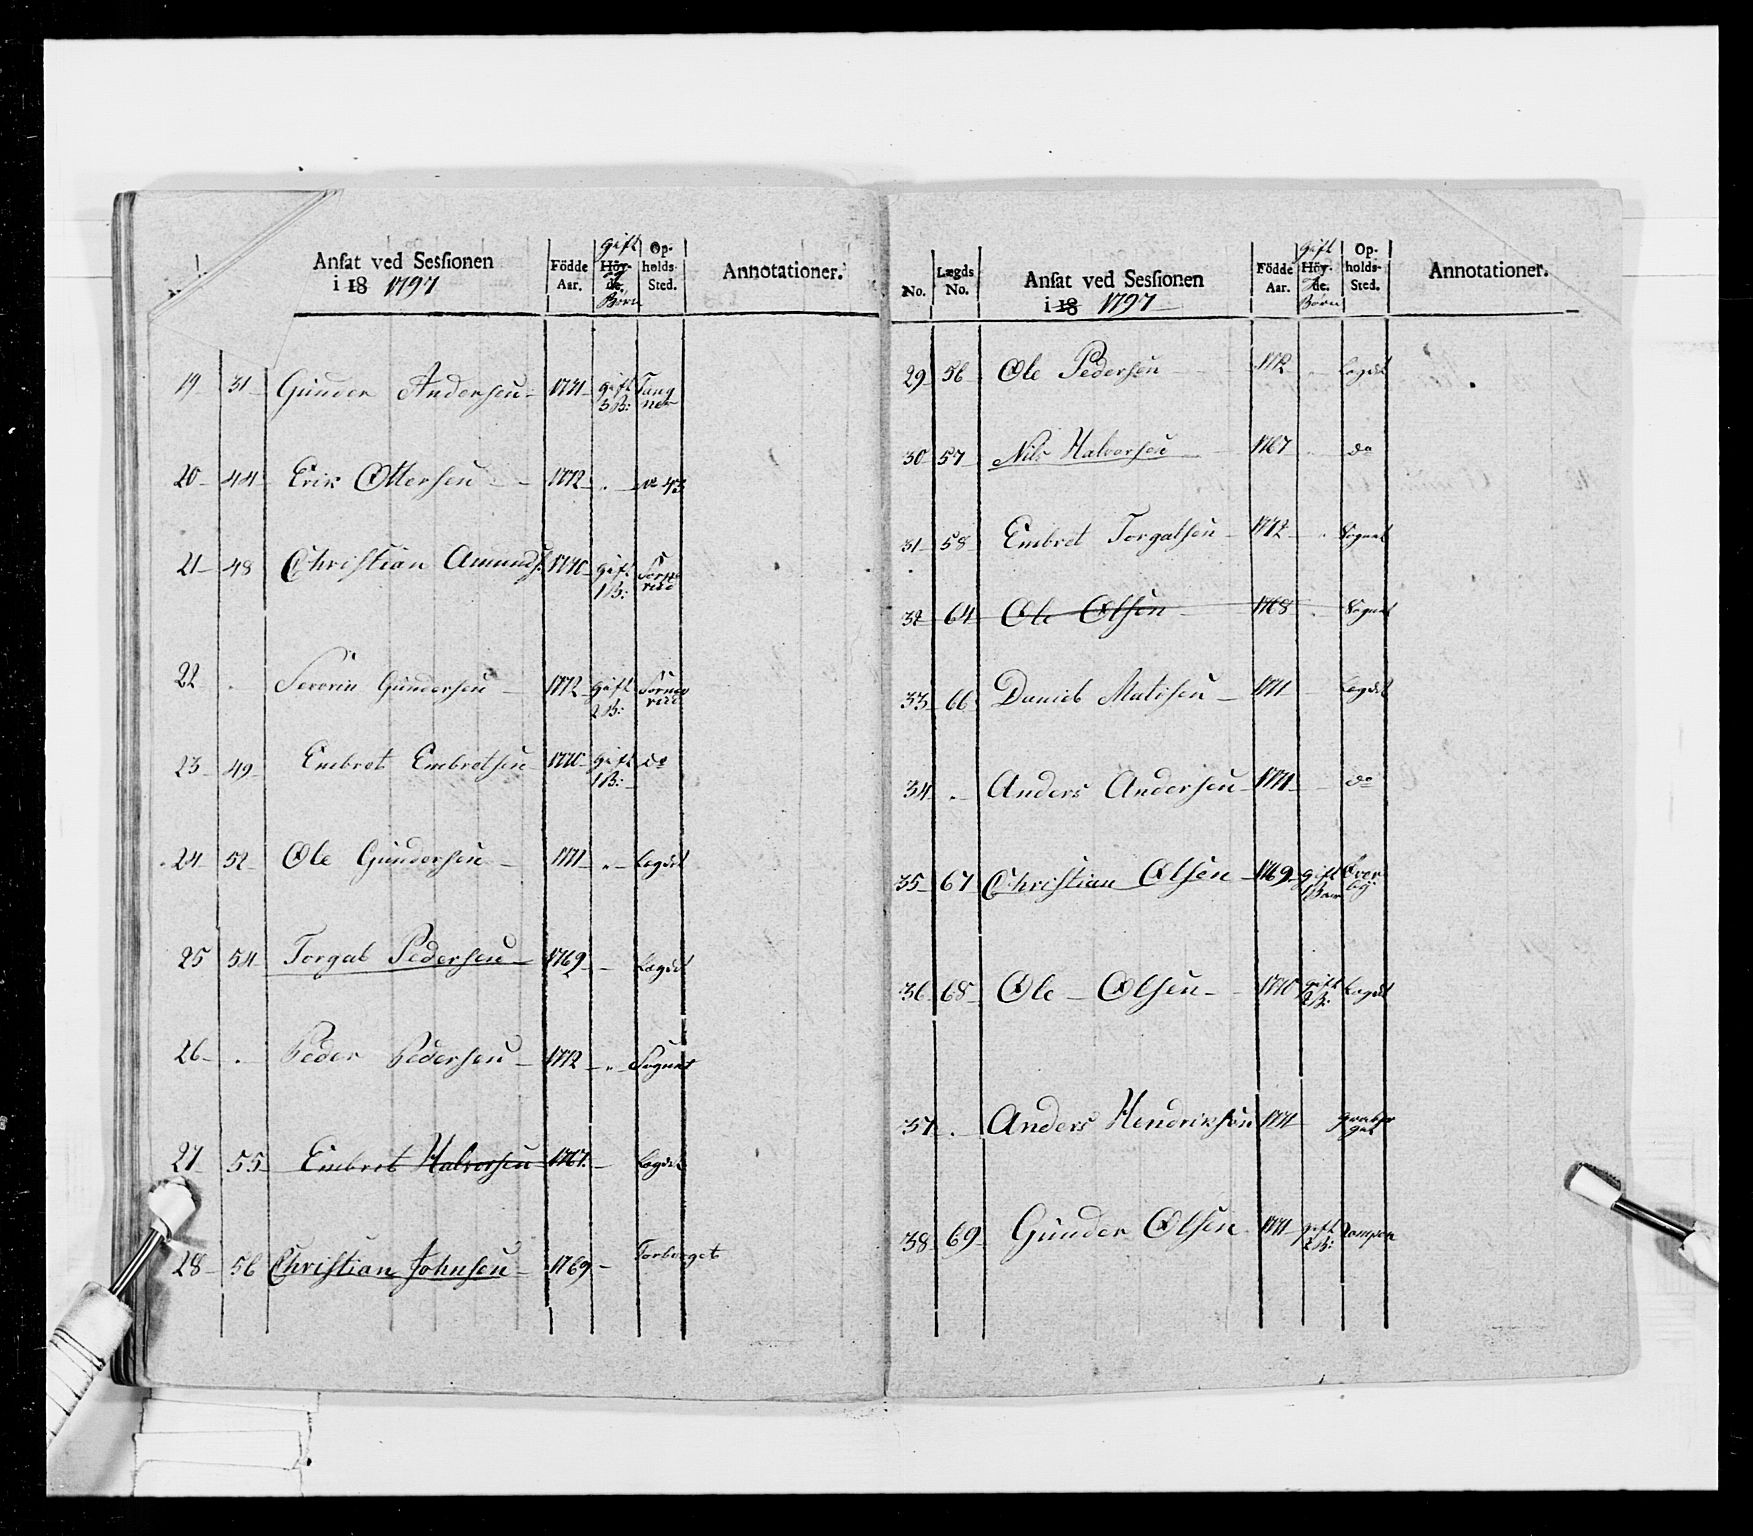 Ansat ved Sessionen
i 18 1797
Födde Aar.
gift
Höy-
de.
Börn
Op-
holds-
Sted.
Annotationer.
19 31 Gunder Andersen 1731 gift
3 B:
20 44 Erik Ottersen 1772 " No 43
21 48 Christian Amunds. 1770 gift
1 B:
22 " Gundersen 1772 gift
2 B:
23 49 Embret Embretsen 1770 gift do
1 B:
24 52 Ole Gundersen 1771 " Lægdet
25 54 Torgal Pedersen 1769 Lægdet
26 " Peder Pedersen 1772 " Sognet
27 55 Embret Halvorsen 1767 Lægdet
28 56 Christian Johnsen 1769 Torberget
No.
Lægds
No.
Ansat ved Sessionen
i 18 1797
Födde
Aar.
gift
Höy-
de.
Börn
Op-
holds-
Sted.
Annotationer.
29 56 Ole Pedersen 1772 Lægdet
30 57 Nils Halvorsen 1767 do
31 58 Embret Torgalsen 1772 " Sognet
32 64 Ole Olsen 1768 Sognet
33 66 Daniel Matisen 1771 Lægdet
34 " Anders Andersen 1771 do
35 67 Christian Olsen 1769 gift Over
1 Barn by
36 68 Ole Olsen 1770 gift Lægdet
2 B:
37 " Anders Hendriksen 1771
38 69 Gunder Olsen 1771 gift
2 B: